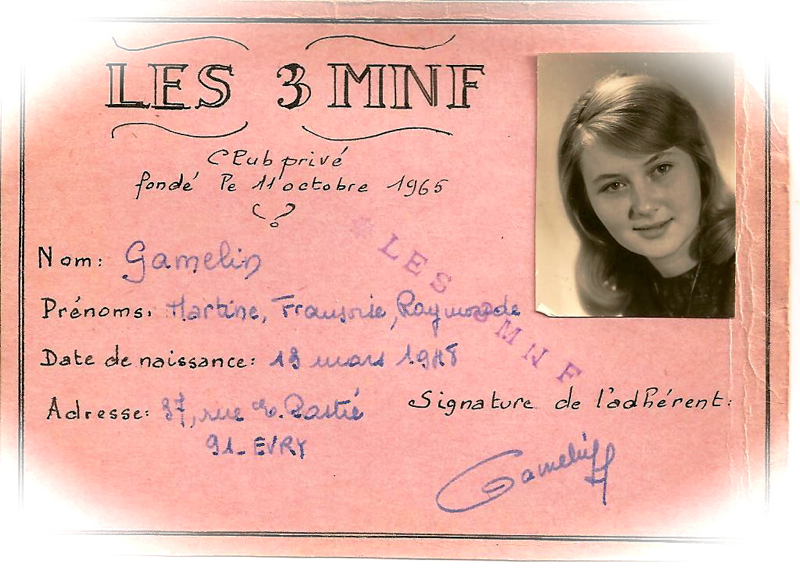 LES 3 MNF
Club privé
fondé le 11 octobre 1965
(?)
* LES 3 MNF
Nom: Gamelin
Prénoms: Martine, Françoise, Raymonde
Date de naissance: 13 mars 1948
Adresse: 37, rue
91_ EVRY
Signature de l'adhérent:
Gamelin